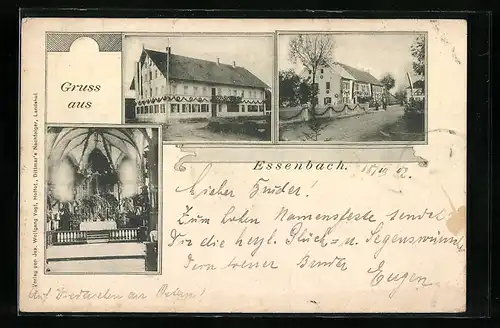 Gruss
aus
Essenbach. 18/III 02.
Lieber Bruder!
Zum hohen Namensfeste sendet
Dir die herzl. Glück- u. Segenswünsche
Dein treuer Bruder
Eugen
Auf Wiedersehen an Ostern!
Verlag von Jos. Wolfgang Vogl, Hoffot., Dittmar's Nachfolger, Landshut